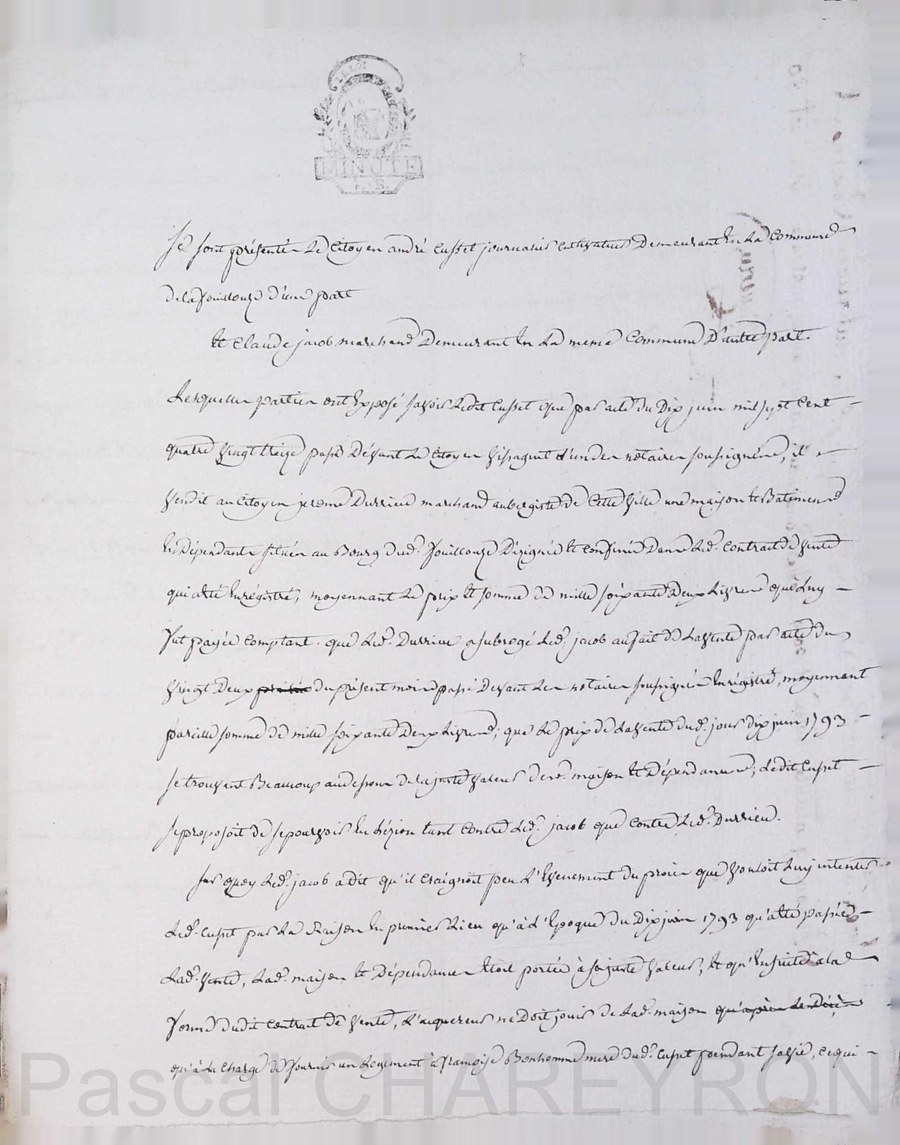 LA LOI
MINUTE
Se sont présentés Le Citoyen andré Cusset journalier cultivateur Demeurant En La Commune
de la fouillouze d'une part
Et Claude jacob marchand Demeurant En La meme Commune D'autre part.
Lesquelles parties ont Exposé savoir Ledit Cusset que par acte du Dix juin mil sept cent
quatre vingt treize passé Devant Le Citoyen l'un des notaires soussignés, il
vendit au Citoyen jerome Durrieu marchand aubergiste de Cette ville une maison et Batiments
En Dépendants situés au Bourg dud. fouillouze Désignés et confinés Dans Led. Contrat de vente
qui a été Enrégistré, moyennant Le prix et somme de mille soixante Deux Livres qui Luy
fut payée comptant. que Led. Durrieu a subrogé Led. jacob au fait de La vente par acte du
vingt Deux du présent mois passé Devant Les notaires soussignés Enrégistré, moyennant
pareille somme de mille soixante Deux Livres; que Le prix de La vente dud. jour dix juin 1793
se trouvant Beaucoup au dessous de la juste valeur des. maison et Dépendances, Ledit Cusset
se proposoit de se pourvoir En Lézion tant Contre Led. jacob que Contre Led. Durrieu.
Sur quoy Led. jacob a dit qu'il Craignoit peu L'Evenement du procès que vouloit Luy intenter
Led. Cusset par La Raison En premier Lieu qu'à L'Epoque du Dix juin 1793 qu'a été passée
Lad. vente, Lad. maison et Dépendances Etoit portée à sa juste valeur, Et qu'Ensuite à la
forme dudit Contrat de vente, L'acquereur ne Doit jouir de Lad. maison qu'après Le Décès
qu'à La Charge de fournir un Logement à françoise Bonhomme mere dud. Cusset pendant sa vie, ce qui
Pascal CHAREYRON